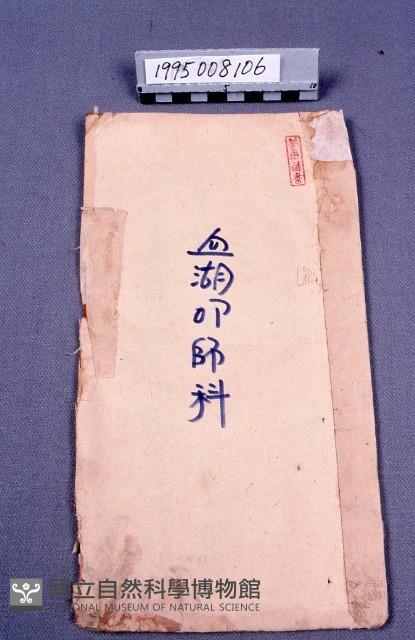 1995008106
0 5 10
血湖叩師科
國立自然科學博物館
NATIONAL MUSEUM OF NATURAL SCIENCE